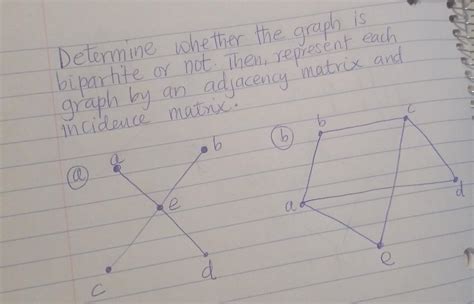 Determine whether the graph is
bipartite or not. Then, represent each
graph by an adjacency matrix and
incidence matrix.
(a) a b
e
c d
(b) b c
a d
e